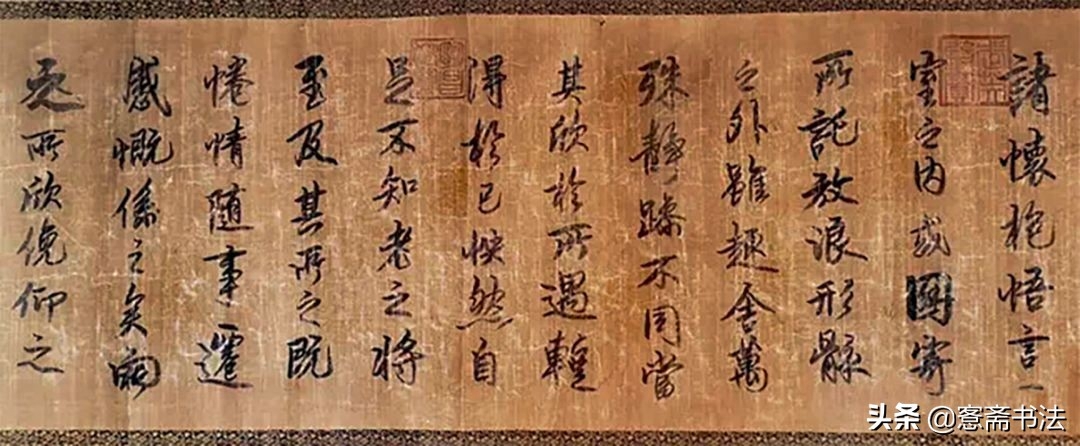 諸懷抱悟言一
室之内或因寄
所託放浪形骸
之外雖趣舍萬
殊靜躁不同當
其欣於所遇暫
得於己怏然自
足不知老之將
至及其所之既
惓情隨事遷
感慨係之矣向
之所欣俛仰之
头条 @愙斋书法